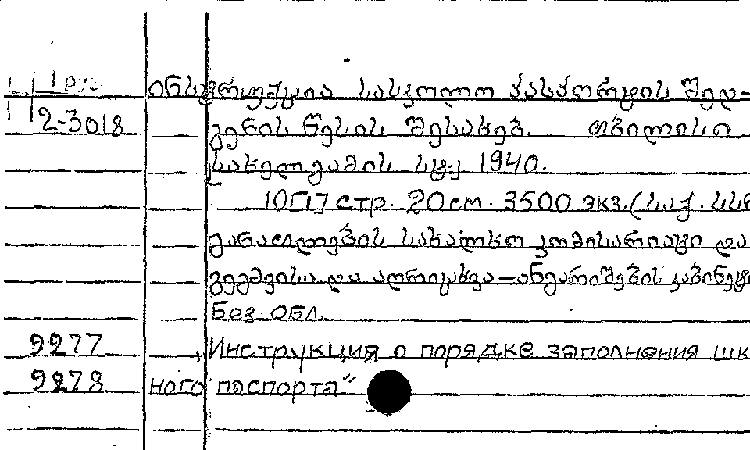 1 руб ინსტრუქცია სასკოლო პასპორტის შედ-
2-3018 გენის წესის შესახებ. თბილისი
სახელგამის სტ. 1940.
10[1] стр. 20 см. 3500 экз. (საქ. სსრ
განათლების სახალხო კომისარიატი და
გეგმვისა და აღრიცხვა-ანგარიშების კაბინეტი
Без обл.
9277 „Инструкция о порядке заполнения шк
9278 ного паспорта"